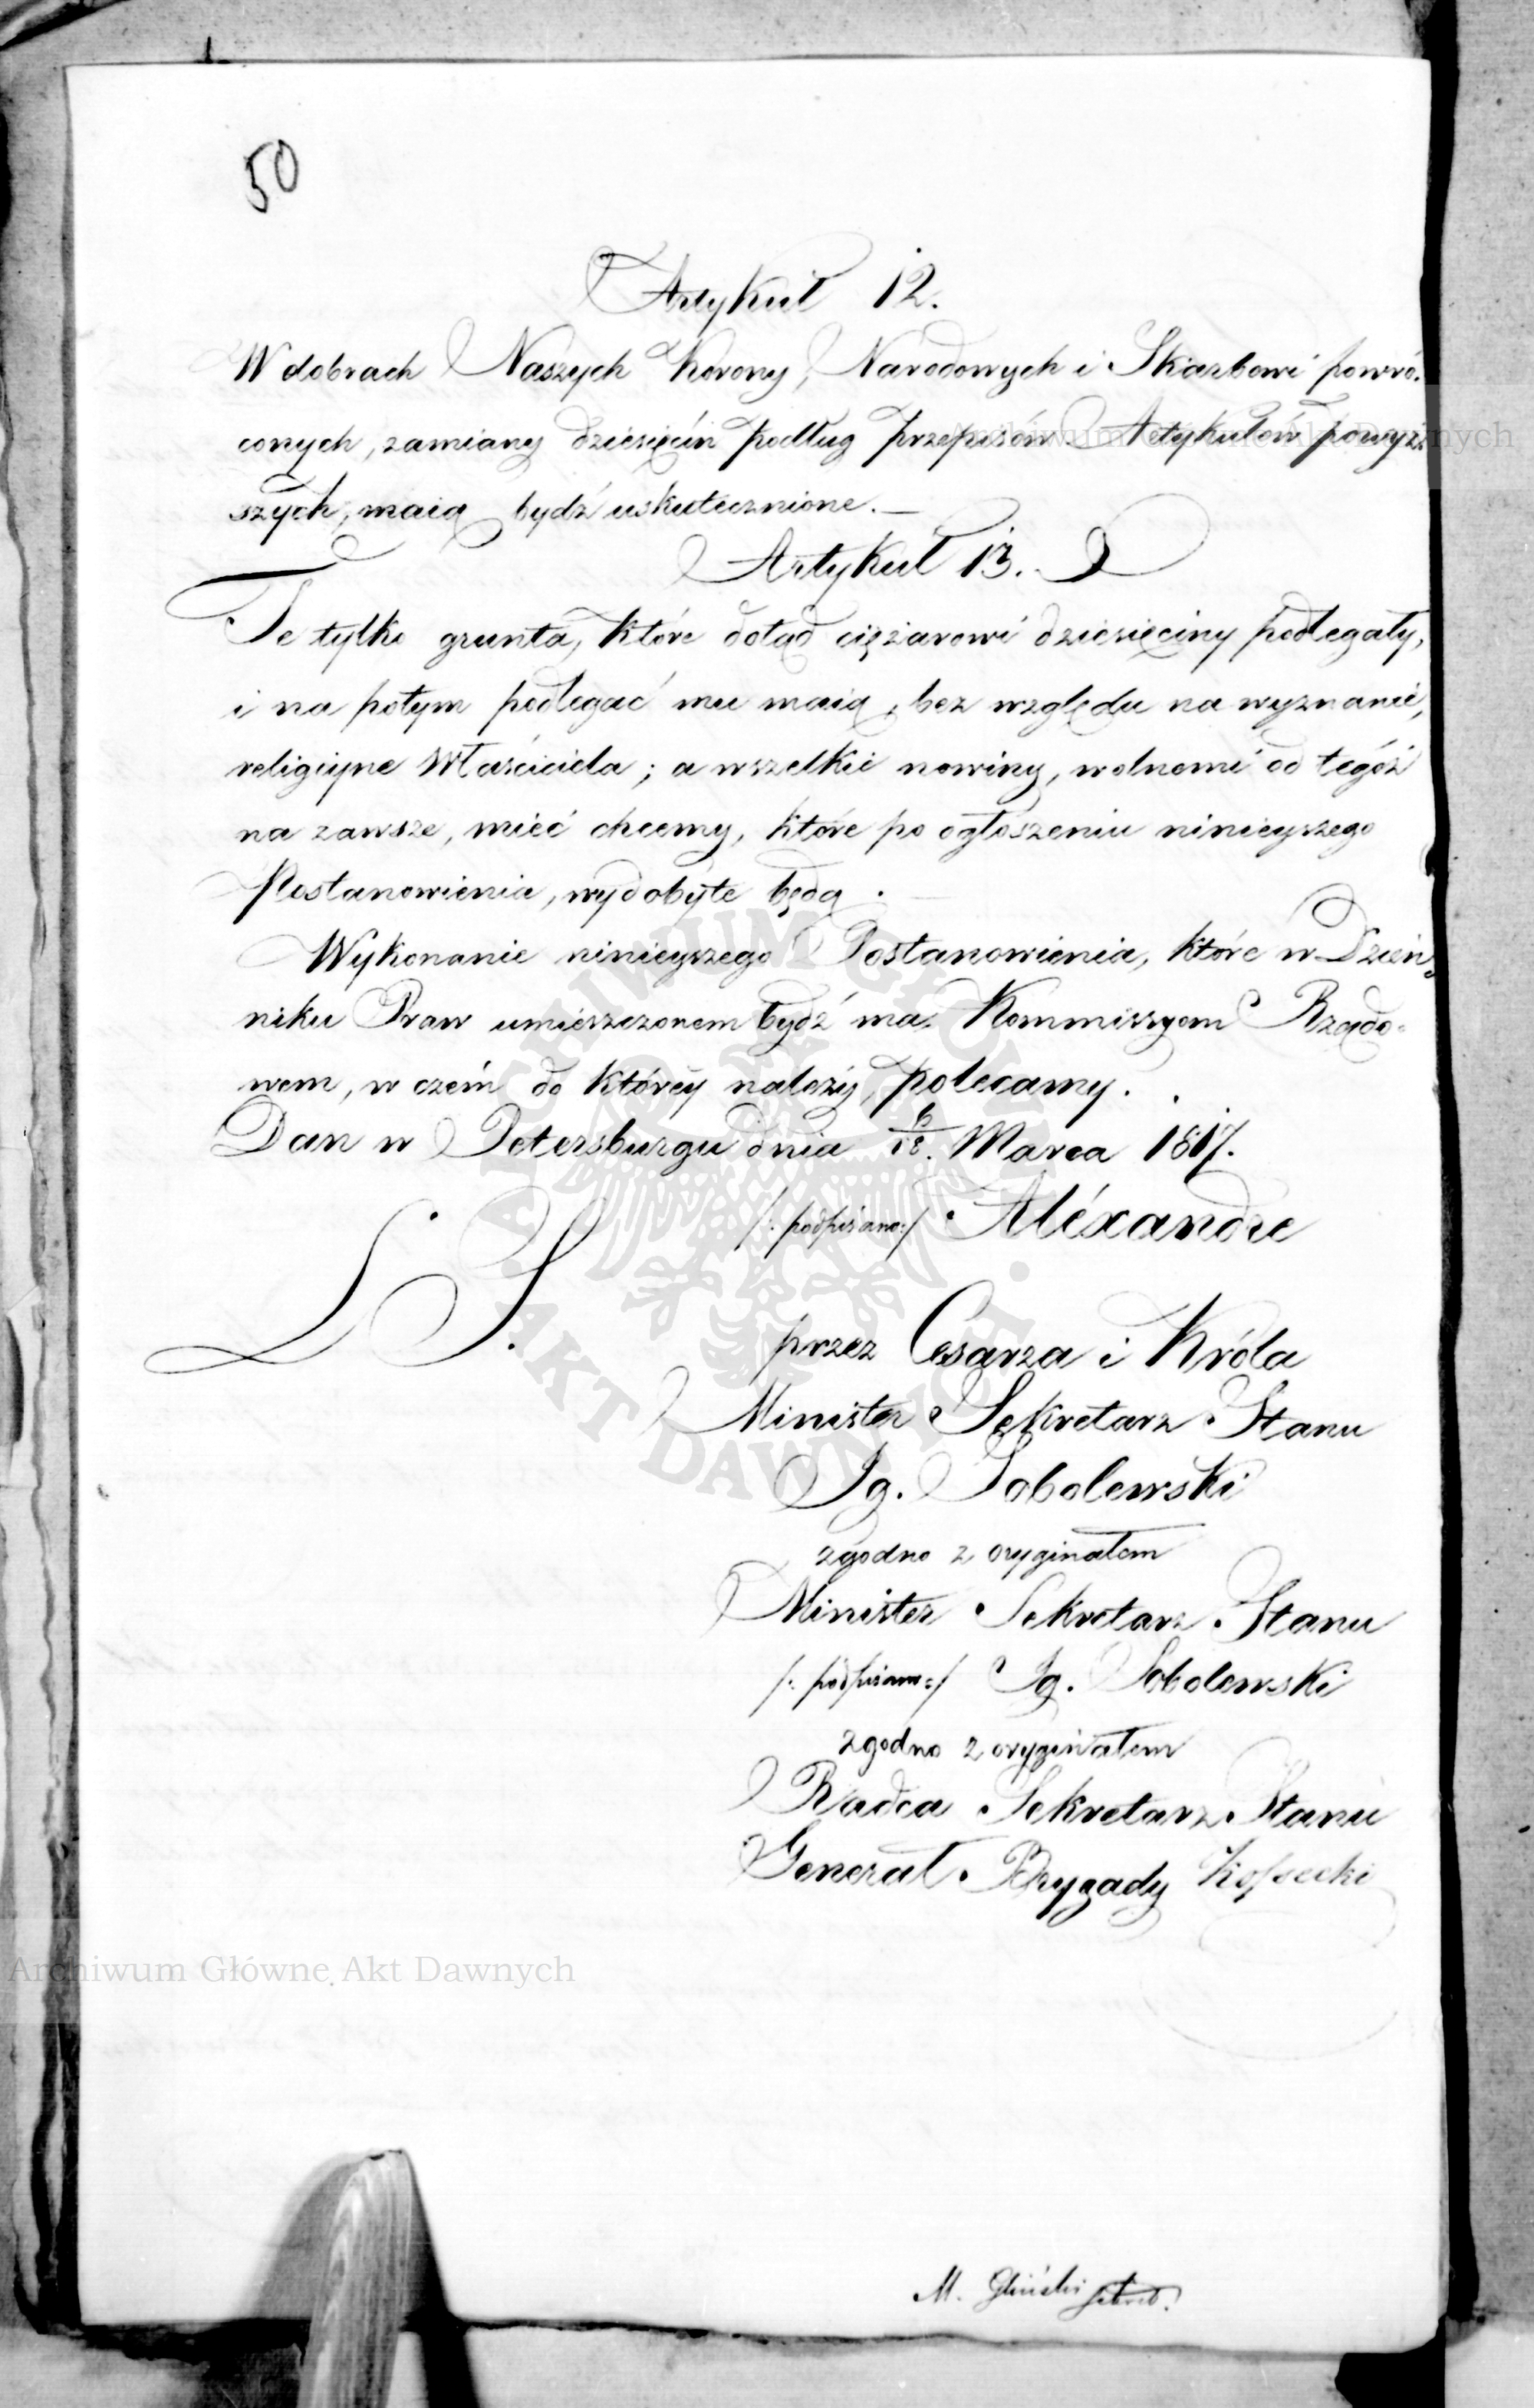 50
Artykuł 12.
W dobrach Naszych Korony, Narodowych i Skarbowi powró-
conych, zamiany dziesięcin podług przepisów Artykułów powyż-
szych, maią bydź uskutecznione.—
Artykuł 13.
Te tylko grunta, które dotąd ciężarowi dziesięciny podlegały,
i na potym podlegać mu maią, bez względu na wyznanie,
religiyne Właściciela; a wszelkie nowiny, wolnemi od tegóż
na zawsze, mieć chcemy, które po ogłoszeniu ninieyszego
Postanowienia, wydobyte będą.
Wykonanie ninieyszego Postanowienia, które w Dzien-
niku Praw umieszczonem bydź ma, Kommissyom Rządo-
wem, w czem do którey należy, polecamy.
Dan w Petersburgu dnia 6/18. Marca 1817.
/: podpisano:/ Aléxandre
L. S.
przez Cesarza i Króla
Minister Sekretarz Stanu
Ig. Sobolewski
zgodno z oryginałem
Minister Sekretarz Stanu
/: podpisano:/ Ig. Sobolewski
zgodno z oryginałem
Radca Sekretarz Stanu
Generał Brygady Kossecki
M. Gliński
Archiwum Główne Akt Dawnych
Archiwum Główne Akt Dawnych
ARCHIWUM GŁÓWNE
AKT DAWNYCH